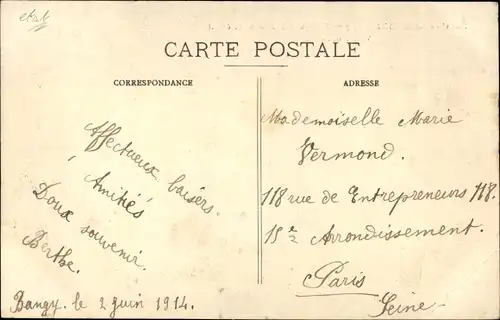 CARTE POSTALE
CORRESPONDANCE
Affectueux baisers.
Amitiés
Doux souvenir.
Berthe.
Bangy. le 2 juin 1914.
ADRESSE
Mademoiselle Marie
Vermond.
118 rue de Entrepreneurs 118.
15e Arrondissement.
Paris
Seine